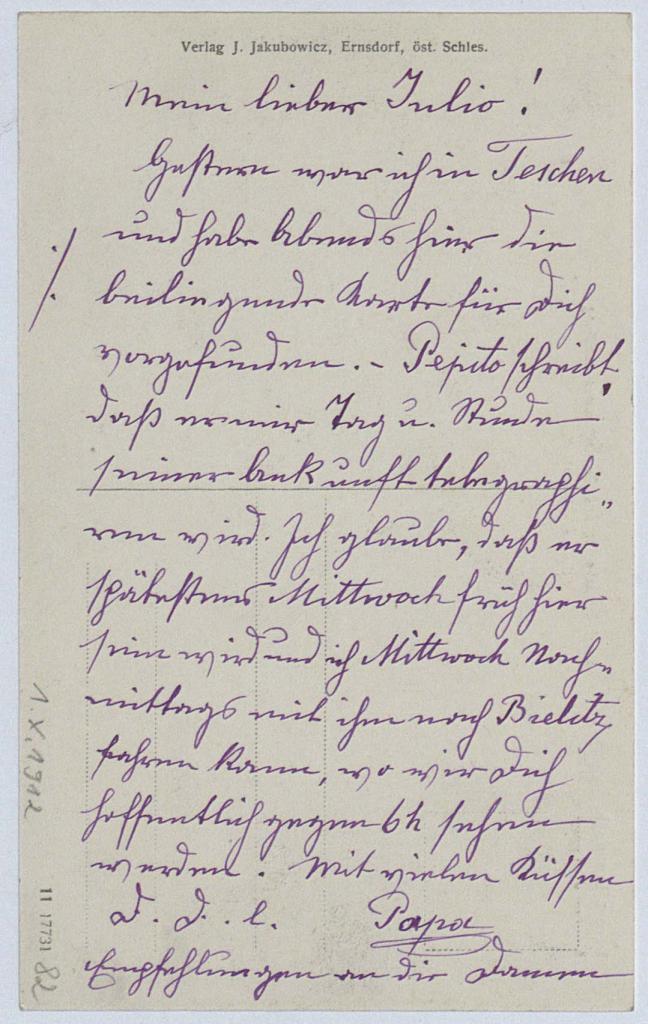 Verlag J. Jakubowicz, Ernsdorf, öst. Schles.
Mein lieber Julio!
Gestern war ich in Teschen
und habe Abends hier die
./. beiliegende Karte für Dich
vorgefunden. – Pepito schreibt,
daß er mir Tag u. Stunde
seiner Ankunft telegraphi„
ren wird. Ich glaube, daß er
spätestens Mittwoch früh hier
sein wird und ich Mittwoch Nach„
mittags mit ihm nach Bielitz
fahren kann, wo wir Dich
hoffentlich gegen 6h sehen
werden. Mit vielen Küssen
D. D. l. Papa
Empfehlungen an die Damen
1.X.1912
11 17731
82